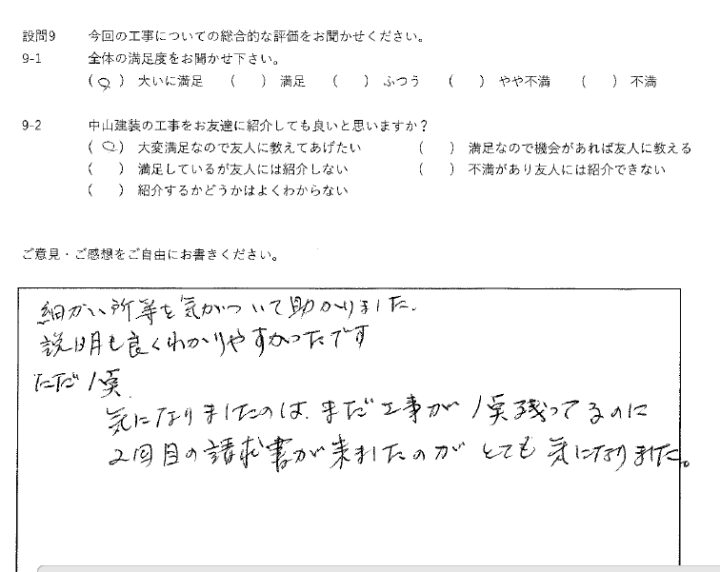 設問9 今回の工事についての総合的な評価をお聞かせください。
9-1 全体の満足度をお聞かせ下さい。
(○) 大いに満足 ( ) 満足 ( ) ふつう ( ) やや不満 ( ) 不満
9-2 中山建装の工事をお友達に紹介しても良いと思いますか？
(○) 大変満足なので友人に教えてあげたい ( ) 満足なので機会があれば友人に教える
( ) 満足しているが友人には紹介しない ( ) 不満があり友人には紹介できない
( ) 紹介するかどうかはよくわからない
ご意見・ご感想をご自由にお書きください。
細かい所等も気がついて助かりました.
説明も良くわかりやすかったです
ただ1点
気になりましたのは、まだ工事が1点残ってるのに
2回目の請求書が来ましたのがとても気になりました。